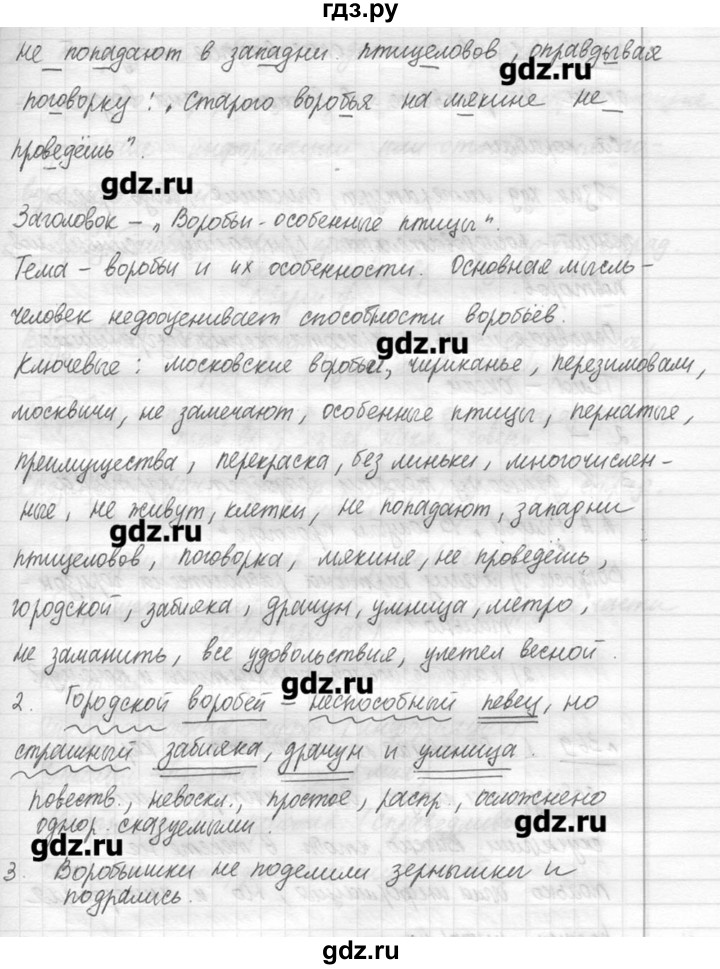 гдз.ру
не попадают в западни птицеловов, оправдывая
gdz.ru
поговорку: „Старого воробья на мякине не
проведёшь".
gdz.ru
Заголовок – „Воробьи - особенные птицы".
Тема – воробьи и их особенности. Основная мысль –
человек недооценивает способности воробьёв.
gdz.ru
Ключевые: московские воробьи, чириканье, перезимовали,
москвичи, не замечают, особенные птицы, пернатые,
преимущества, перекраска, без линьки, многочислен-
ные, не живут, клетки, не попадают, западни
gdz.ru
птицеловов, поговорка, мякина, не проведёшь,
городской, забияка, драчун, умница, метро,
не заманить, все удовольствия, улетел весной.
gdz.ru
2. Городской воробей – неспособный певец, но
страшный забияка, драчун и умница.
повеств., невоскл., простое, распр., осложнено
однор. сказуемыми.
gdz.ru
gdz.ru
3. Воробьишки не поделили зернышки и
подрались.
gdz.ru